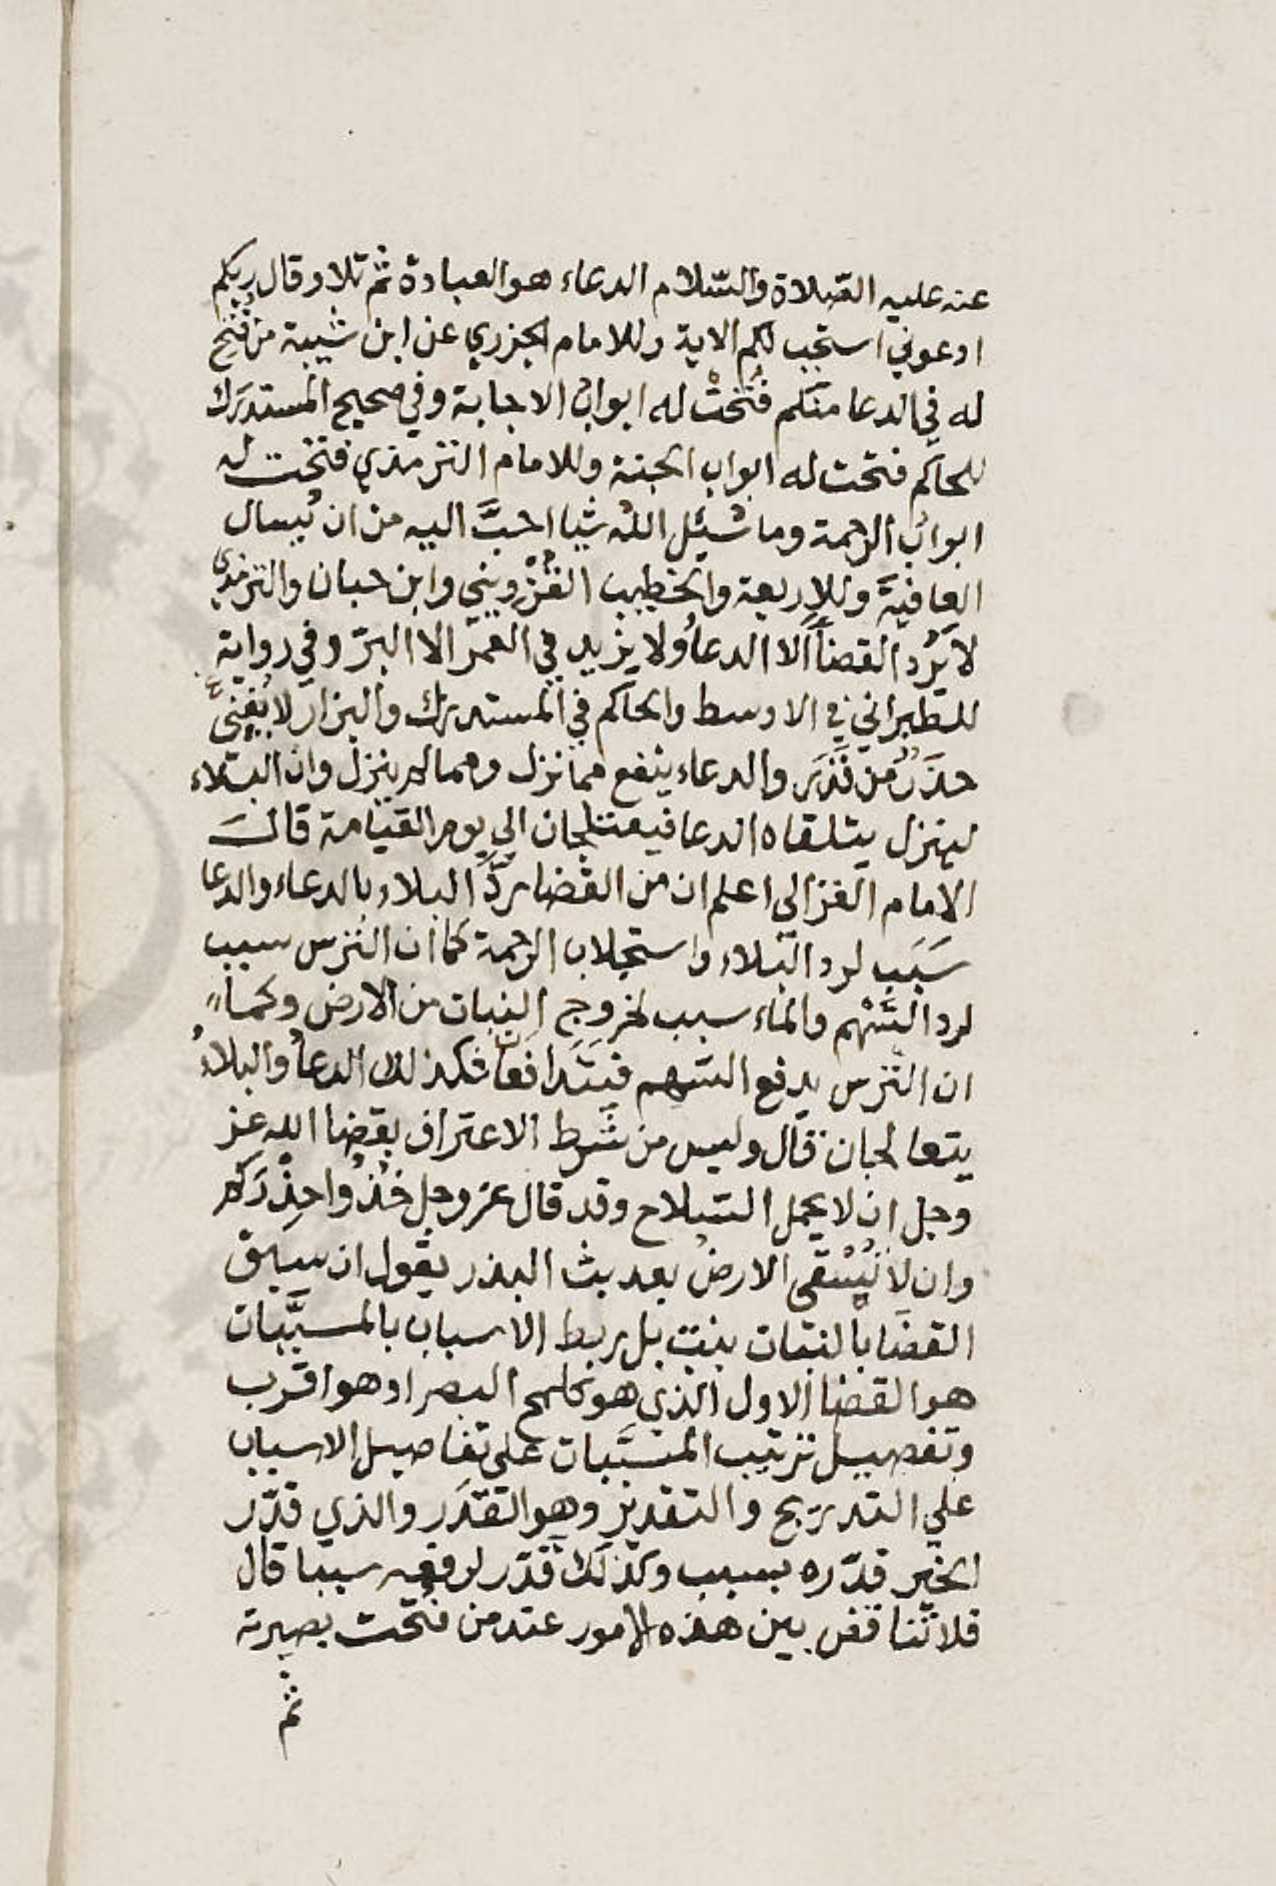 عنه عليه الصّلاة والسّلام الدعاء هو العبادة ثم تلا وقال ربكم
ادعوني استجب لكم الاية وللامام الجزري عن ابن شيبة من فُتح
له في الدعا منكم فُتحتْ له ابوابُ الاجابة وفي صحيح المستدرك
للحاكم فتحت له ابواب الجنة وللامام الترمذي فتحت له
ابوابُ الرحمة وما سُئِل اللّه شيا احبَّ اليه من ان يُسال
العافيةَ وللاربعة والخطيب القزويني وابن حبان والترمذي
لا يَرُد القضاَ الا الدعاُ ولا يزيد في العمر الا البرّ وفي رواية
للطبراني في الاوسط والحاكم في المستدرك والبزار لا يُغني
حذَرٌ من قَدَر والدعاء ينفع مما نزل ومما لم ينزل وان البلاء
لينزل يتلقاه الدعا فيعتلجان الي يوم القيامة قال
الامام الغزالي اعلم ان من القضا ردَّ البلاء بالدعاء والدعا
سَبَب لرد البلاء واستجلاب الرحمة كما ان الترس سبب
لرد السَّهْم والماء سبب لخروج النبات من الارض وكما
ان الترس يدفع السّهم فيتَدافعان فكذلك الدعاُ والبلاءُ
يتعالجان قال وليس من شَرط الاعتراف بقضا الله عز
وجل ان لا يحمل السّلاح وقد قال عز وجل خُذُوا حِذْرَكم
وان لا يُسْقي الارضُ بعد بث البذر يقول ان سبق
القضَا بالنبات ينبت بل ربط الاسباب بالمسبَّبات
هو القضا الاول الذي هو كلمح البصر او هو اقرب
وتفصيل ترتيب المسَبَّبات علي تفاصيل الاسباب
علي التدريج والتقدير وهو القدَر والذي قدّر
الخير قدّره بسبب وكذلك قَدّر لرفعه سببا قال
فلا تناقض بين هذه الامور عند من فتحت بصيرته
ثم